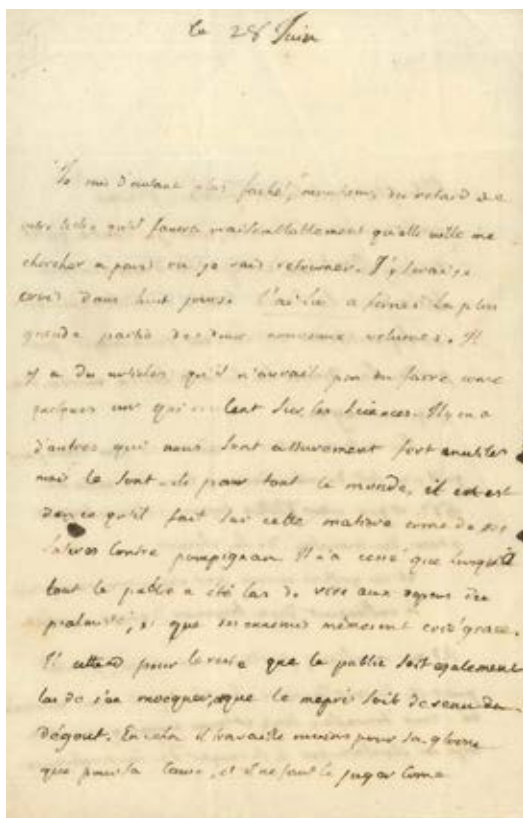 le 28 Juin
Je suis d'autant plus faché, monsieur, du retard de
votre lettre qu'il faudra vraisemblablement qu'elle aille me
chercher a paris ou je vais retourner. J'y serai je
crois dans huit jours. J'ai lu a fernei la plus
grande partie des deux nouveaux volumes. Il
y a des articles qu'il n'aurait pas du faire come
quelques uns qui roulent sur les sciences. Il y en a
d'autres qui nous sont assurement fort
mais le sont-ils pour tout le monde, il en est
de ce qu'il fait sur cette matiere come de ses
satires contre pompignan. Il n'a cessé que lorsque
tout le public a été las de rire aux depens du
psalmiste, et que ses ennemis mêmes ont crié grace.
Il attend pour le reste que le public soit egalement
las de s'en mocquer, que le mepris soit devenu du
dégout. En cela il travaille moins pour sa gloire
que pour la cause, et il ne faut le juger come